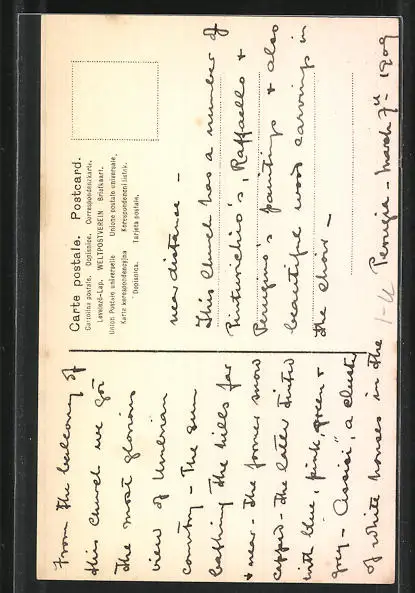 Carte postale. Postcard.
Cartolina postale. Dopisnice. Correspondenzkarte.
Levelező-Lap. WELTPOSTVEREIN Briefkaart.
Union Postale universelle Unione postale universale.
Karta korespondencyjna Korespondenční lístek.
Dopisnica. Tarjeta postale.
From the balcony of
this Church we got
the most glorious
view of Umbrian
country - The sun
bathing the hills far
& near - the former snow
capped - the latter tinted
with blue, pink, green &
grey - "Assisi", a cluster
of white houses in the
near distance -
This Church has a number of
Pinturichio's, Raffaello &
Perugino's paintings & also
beautiful wood carvings in
the choir -
Perugia - March 7th - 1909